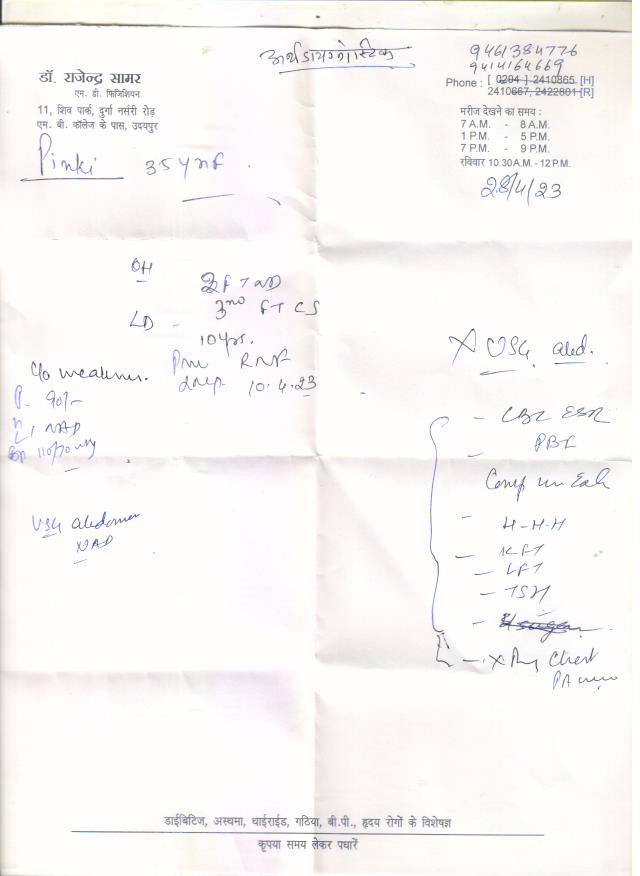 अर्थ डायग्नोस्टिक
डॉ. राजेन्द्र सामर
एम. डी. फिजिशियन
11, शिव पार्क, दुर्गा नर्सरी रोड़
एम. बी. कॉलेज के पास, उदयपुर
9461384776
9414164669
Phone : [ 0294 ] 2410865. [H]
2410667, 2422801 [R]
मरीज देखने का समय :
7 A.M. - 8 A.M.
1 P.M. - 5 P.M.
7 P.M. - 9 P.M.
रविवार 10.30 A.M. - 12 P.M.
28/4/23
Pinki 35 Y
OH
3rd FT CS
LD -
10 yrs.
10.4.23
c/o weakness.
P. 90/-
NAD
BP 110/70
USG Abdomen
NAD
USG abd.
- CBC ESR
PBF
- H-H-H
- KFT
- LFT
- TSH
- X Ray Chest
PA view
डाईबिटिज, अस्थमा, थाईराईड, गठिया, बी.पी., हृदय रोगों के विशेषज्ञ
कृपया समय लेकर पधारें